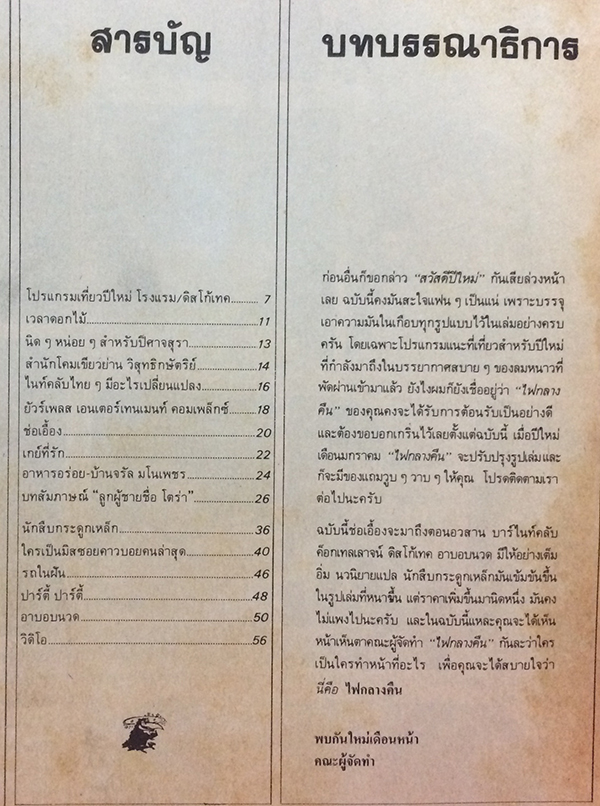 สารบัญ
โปรแกรมเที่ยวปีใหม่ โรงแรม/ดิสโก้เทค.......... 7
เวลาดอกไม้..........11
นิด ๆ หน่อย ๆ สำหรับปีศาจสุรา..........13
สำนักโคมเขียวย่าน วิสุทธิกษัตริย์..........14
ไนท์คลับไทย ๆ มีอะไรเปลี่ยนแปลง..........16
ยัวร์เพลส เอนเตอร์เทนเมนท์ คอมเพล็กซ์..........18
ช่อเอื้อง..........20
เกย์ที่รัก..........22
อาหารอร่อย-บ้านจรัล มโนเพชร..........24
บทสัมภาษณ์ "ลูกผู้ชายชื่อ โตร่า"..........26
นักสืบกระดูกเหล็ก..........36
ใครเป็นมิสซอยคาวบอยคนล่าสุด..........40
รถในฝัน..........46
ปาร์ตี้ ปาร์ตี้..........48
อาบอบนวด..........50
วิดิโอ..........56
บทบรรณาธิการ
ก่อนอื่นก็ขอกล่าว "สวัสดีปีใหม่" กันเสียล่วงหน้า
เลย ฉบับนี้คงมันสะใจแฟน ๆ เป็นแน่ เพราะบรรจุ
เอาความมันในเกือบทุกรูปแบบไว้ในเล่มอย่างครบ
ครัน โดยเฉพาะโปรแกรมแนะที่เที่ยวสำหรับปีใหม่
ที่กำลังมาถึงในบรรยากาศสบาย ๆ ของลมหนาวที่
พัดผ่านเข้ามาแล้ว ยังไงผมก็ยังเชื่ออยู่ว่า "ไฟกลาง
คืน" ของคุณคงจะได้รับการต้อนรับเป็นอย่างดี
และต้องขอบอกเกริ่นไว้เลยตั้งแต่ฉบับนี้ เมื่อปีใหม่
เดือนมกราคม "ไฟกลางคืน" จะปรับปรุงรูปเล่มและ
ก็จะมีของแถมวูบ ๆ วาบ ๆ ให้คุณ โปรดติดตามเรา
ต่อไปนะครับ
ฉบับนี้ช่อเอื้องจะมาถึงตอนอวสาน บาร์ไนท์คลับ
ค็อกเทลเลาจน์ ดิสโก้เทค อาบอบนวด มีให้อย่างเต็ม
อิ่ม นวนิยายแปล นักสืบกระดูกเหล็กมันเข้มข้นขึ้น
ในรูปเล่มที่หนาขึ้น แต่ราคาเพิ่มขึ้นมานิดหนึ่ง มันคง
ไม่แพงไปนะครับ และในฉบับนี้แหละคุณจะได้เห็น
หน้าเห็นตาคณะผู้จัดทำ "ไฟกลางคืน" กันละว่าใคร
เป็นใครทำหน้าที่อะไร เพื่อคุณจะได้สบายใจว่า
นี่คือ ไฟกลางคืน
พบกันใหม่เดือนหน้า
คณะผู้จัดทำ